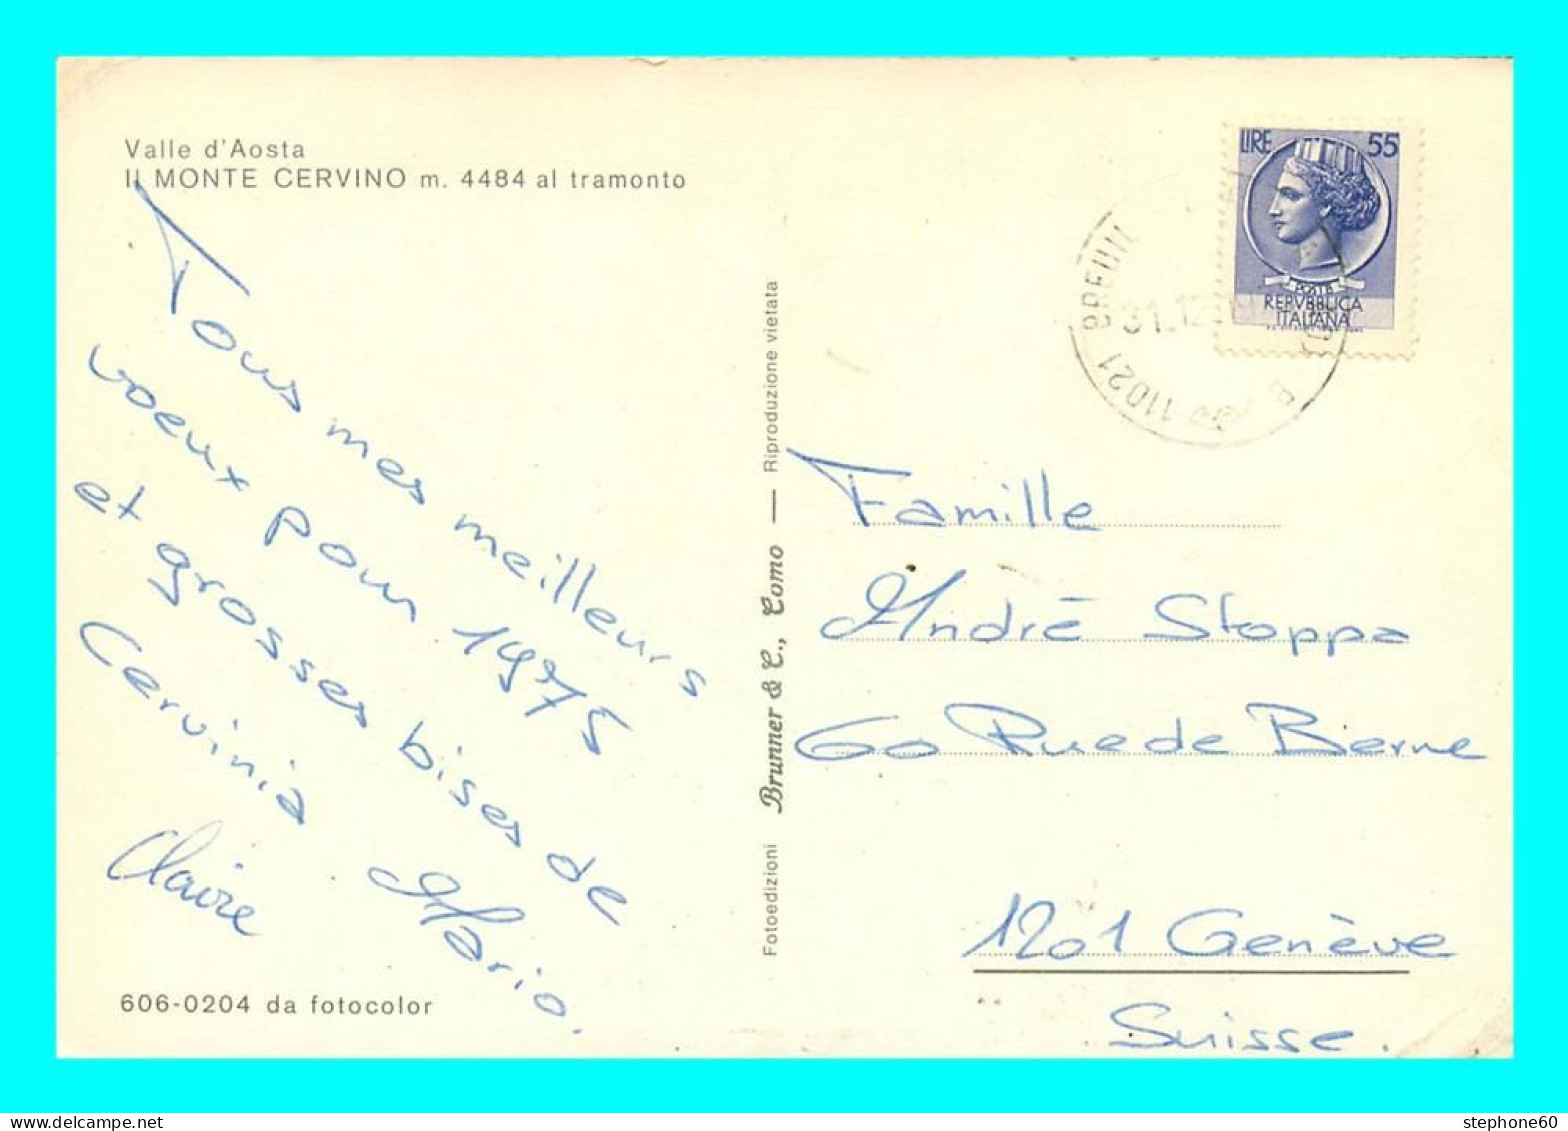 Valle d'Aosta
Il MONTE CERVINO m. 4484 al tramonto
Tous mes meilleurs
voeux pour 1975
et grosses bises de
Cervinia
Claire
Mario.
606-0204 da fotocolor
Fotoedizioni Brunner & C., Como — Riproduzione vietata
LIRE 55
POSTE
REPVBBLICA
ITALIANA
11021 BREUIL
31.12
B
Famille
André Stoppa
60 Rue de Berne
1201 Genève
Suisse.
stephone60